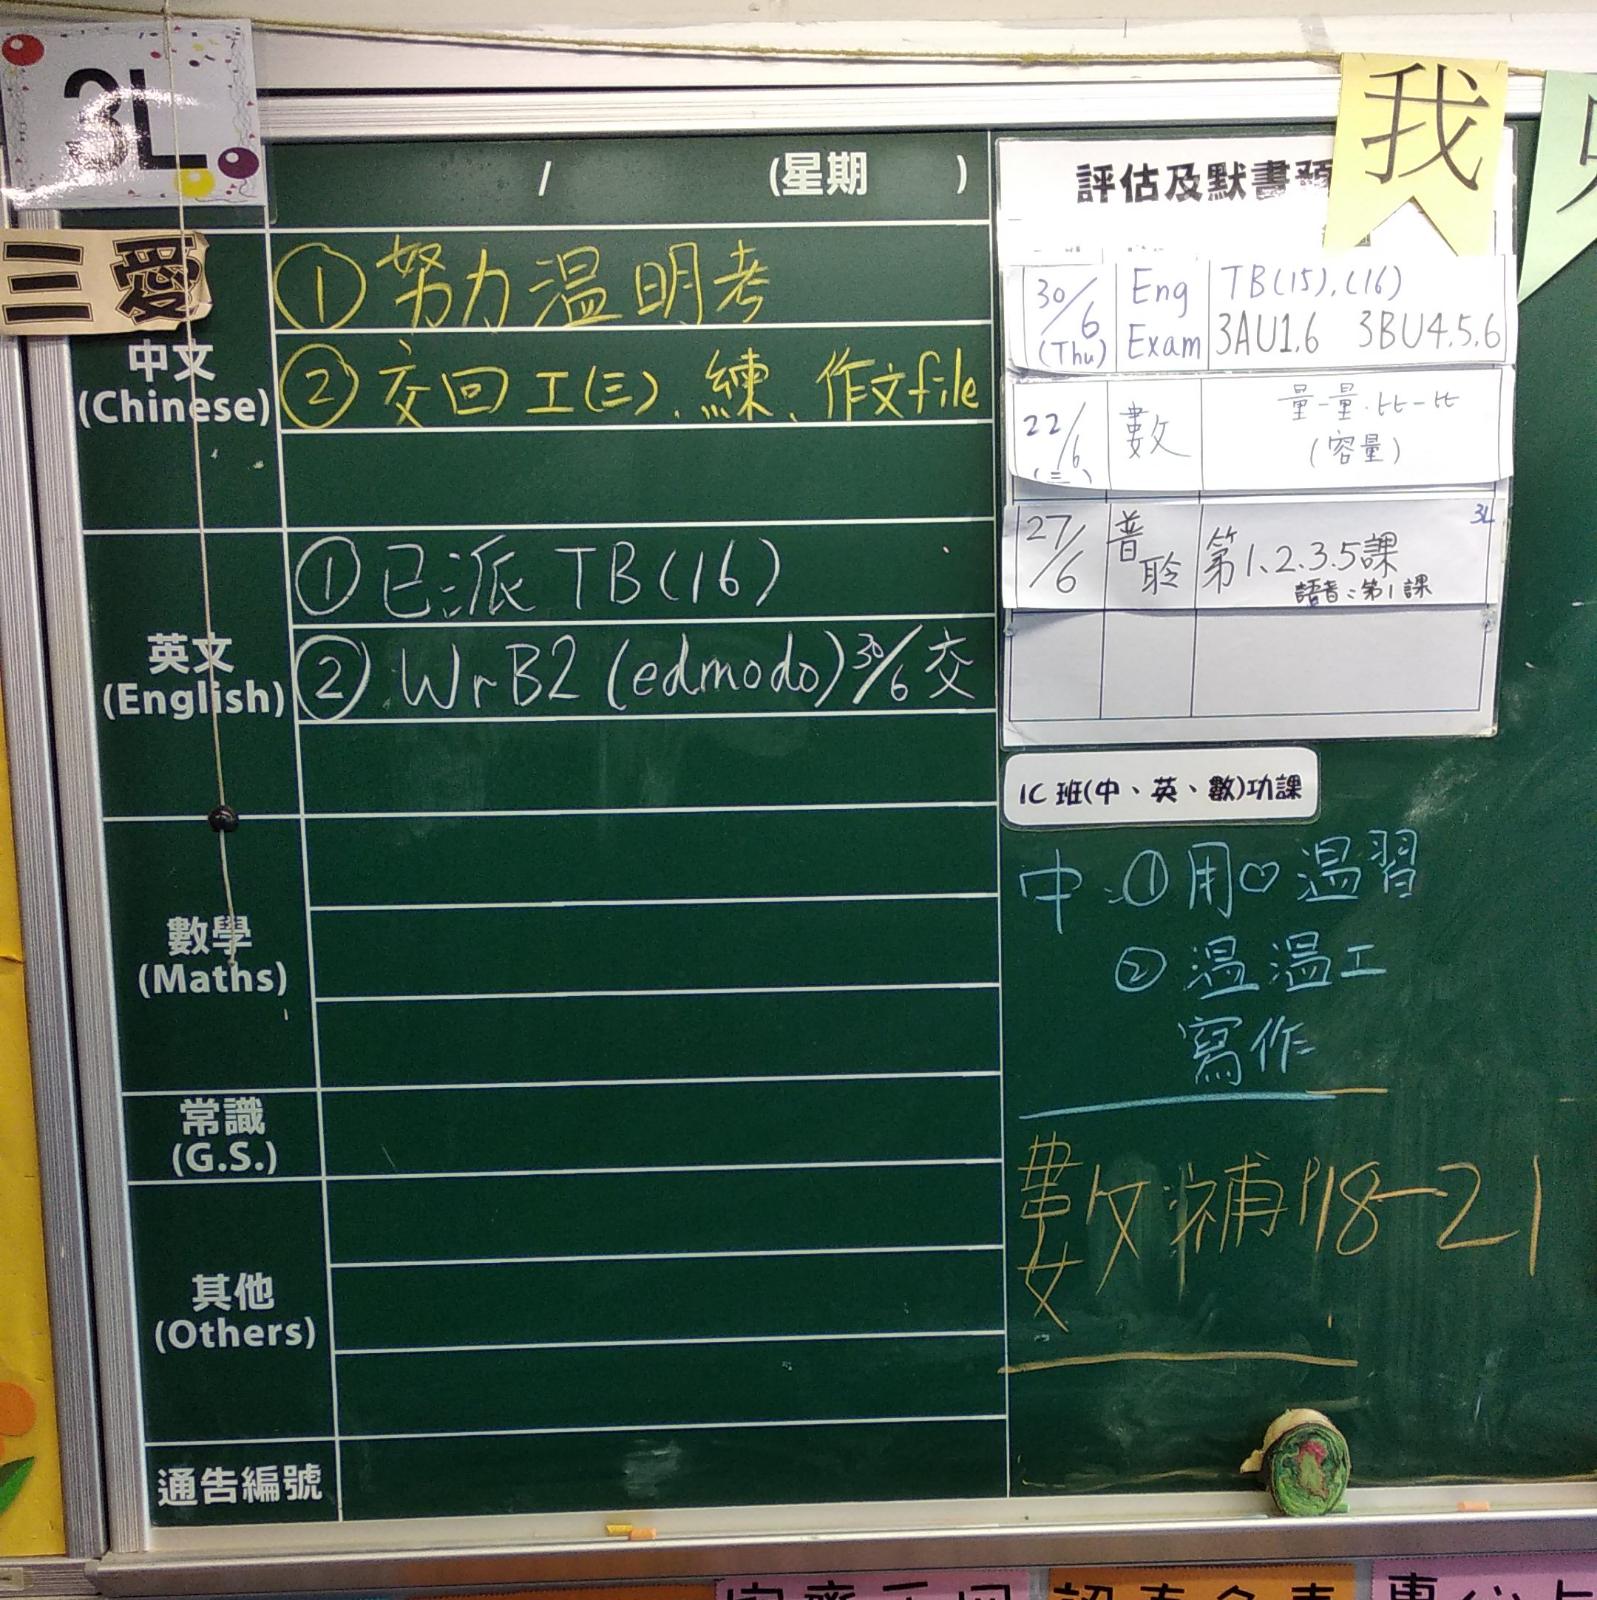 3L
三愛
/ (星期 )
中文
(Chinese)
① 努力温明考
② 交回工(三)、練、作文file
英文
(English)
① 已派 TB(16)
② WrB2 (edmodo) 30/6 交
數學
(Maths)
常識
(G.S.)
其他
(Others)
通告編號
評估及默書
我
30/6 (Thu) Eng Exam TB(15),(16)
3AU1.6 3BU4.5.6
22/6 (三) 數 量一量.比一比
(容量)
27/6 普聆 第1.2.3.5課 3L
語音:第1課
IC 班(中、英、數)功課
中:①用♡温習
② 温温工
寫作
數:補P18-21